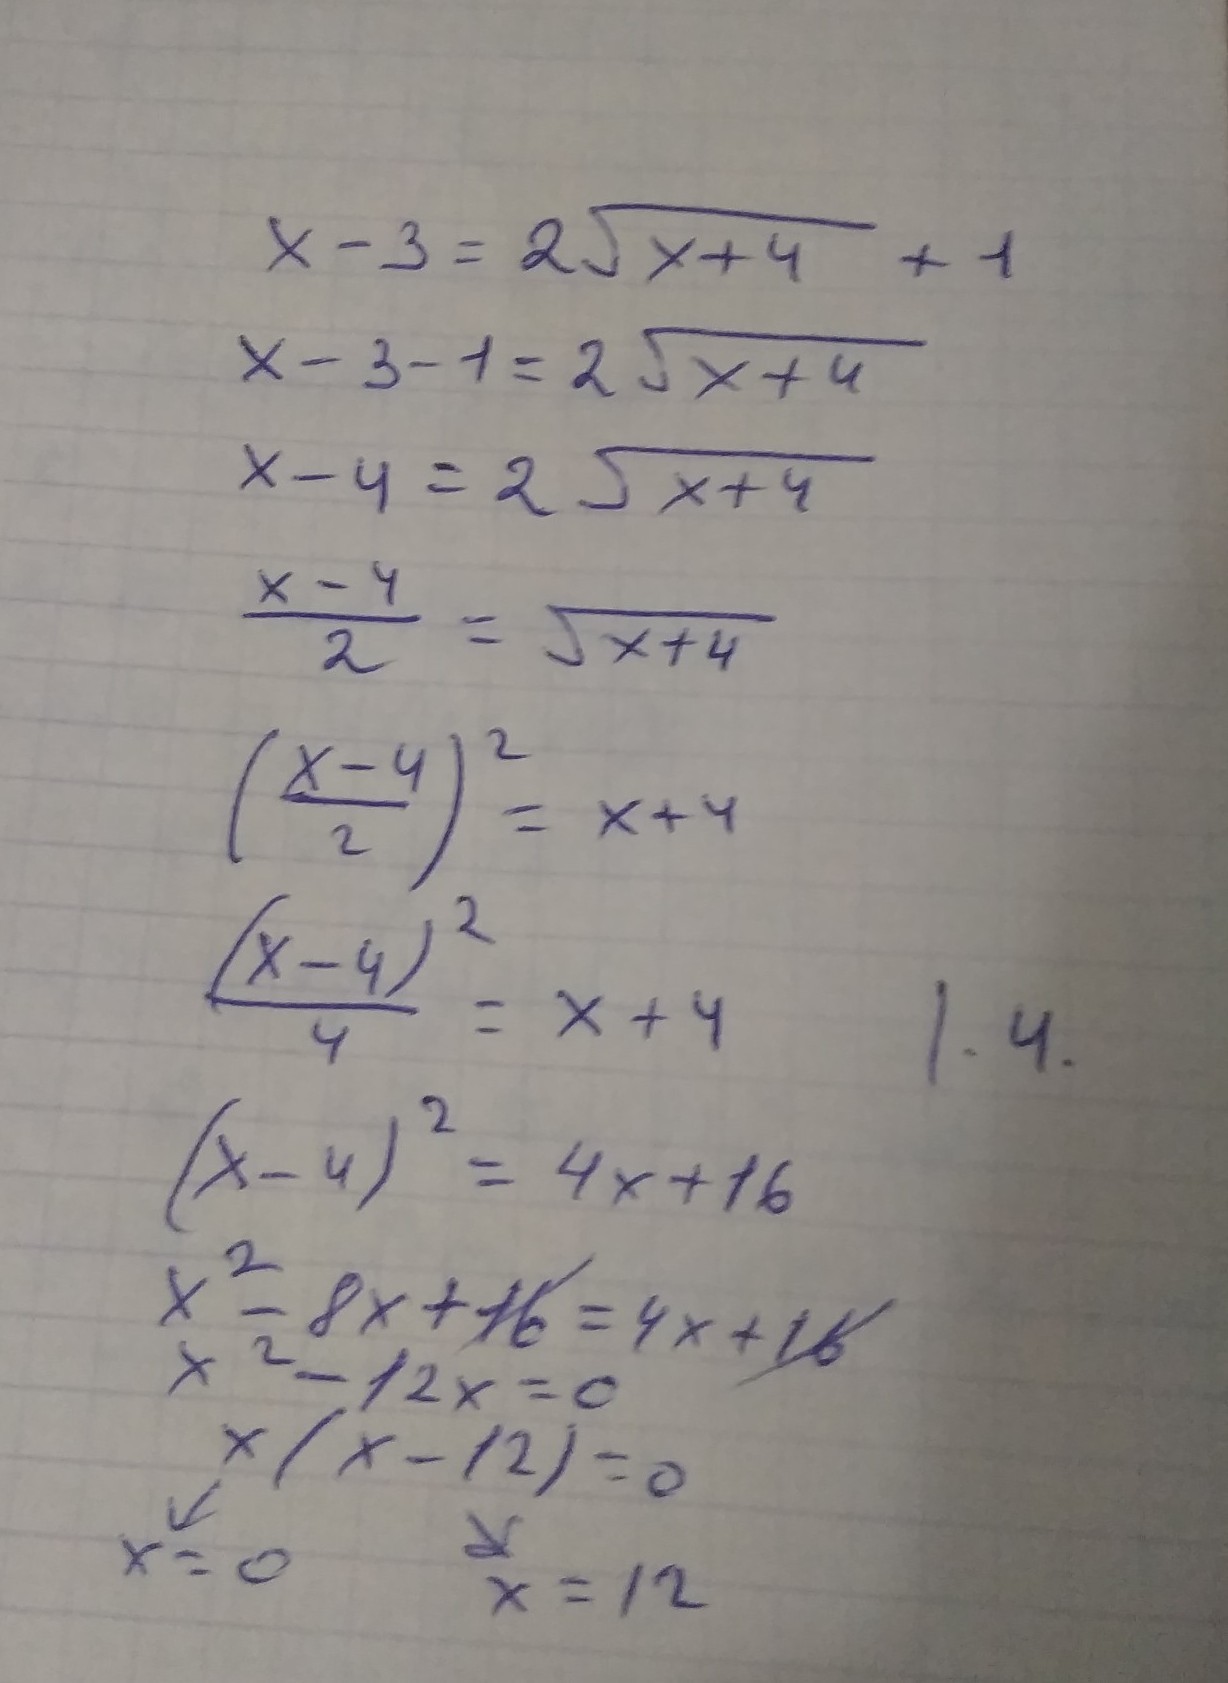 x - 3 = 2√(x+4) + 1
x - 3 - 1 = 2√(x+4)
x - 4 = 2√(x+4)
(x - 4)/2 = √(x+4)
((x - 4)/2)² = x+4
(x - 4)²/4 = x + 4 | · 4.
(x - 4)² = 4x + 16
x² - 8x + 16 = 4x + 16
x² - 12x = 0
x(x - 12) = 0
↙ ↘
x = 0 x = 12